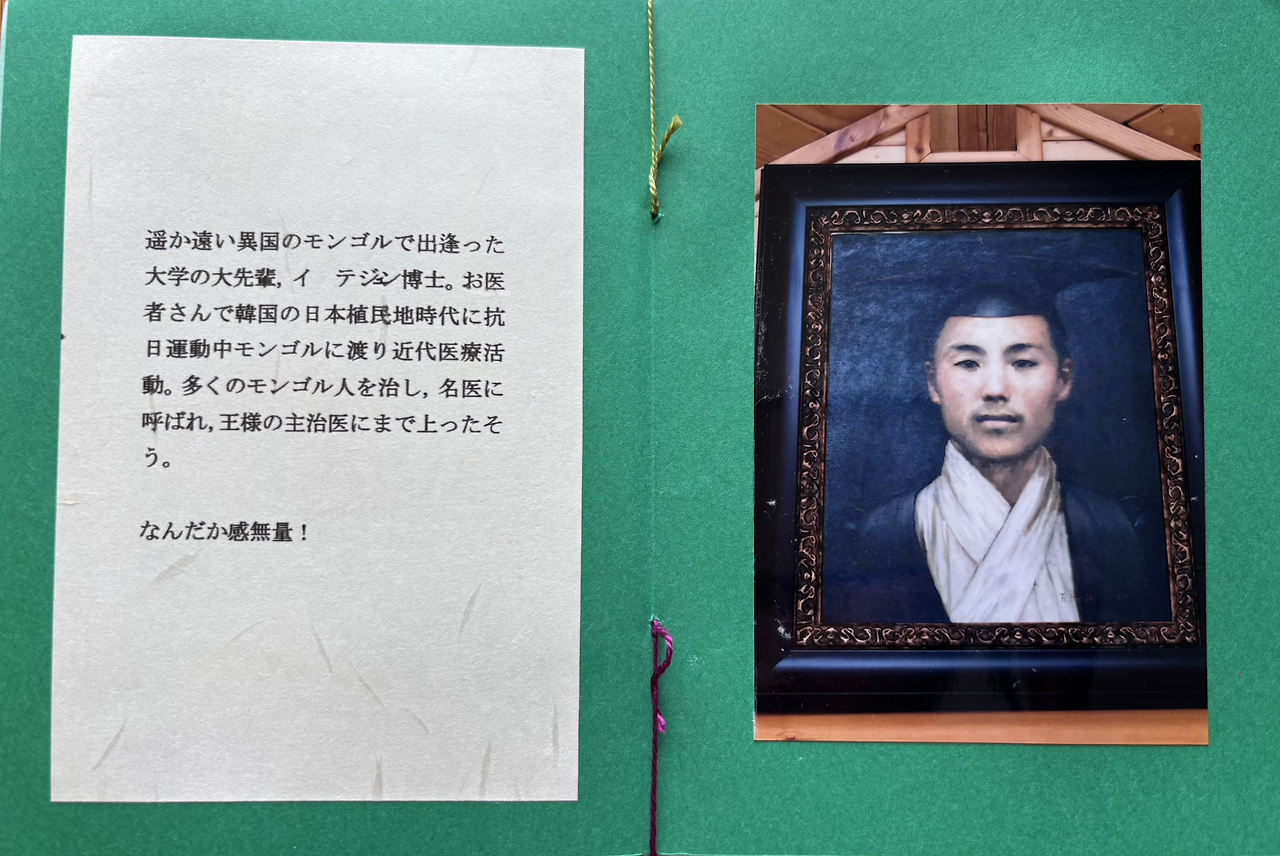 遥か遠い異国のモンゴルで出逢った
大学の大先輩, イ　テジュン博士。お医
者さんで韓国の日本植民地時代に抗
日運動中モンゴルに渡り近代医療活
動。多くのモンゴル人を治し, 名医に
呼ばれ, 王様の主治医にまで上ったそ
う。
なんだか感無量！